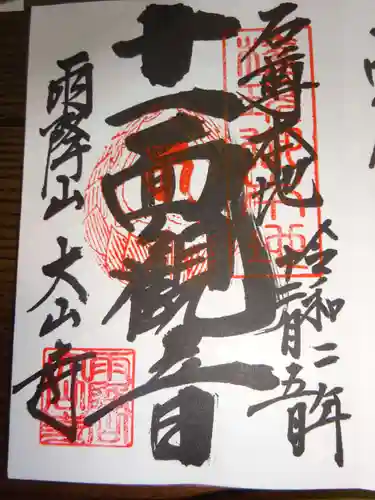 石尊本地
令和二年
十二月五日
十一面観音
雨降山
大山寺